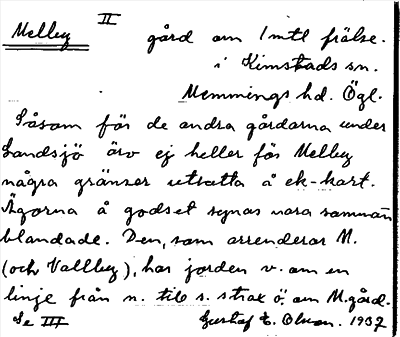 Melby II gård om 1 mtl frälse.
i Kimstads sn.
Memmings hd. Ögl.
Såsom för de andra gårdarna under
Landsjö äro ej heller för Melby
några gränser utsatta å ek-kart.
Ägorna å godset synas vara samman
blandade. Den, som arrenderar M.
(och Vallby), har jorden v. om en
linje från n. till s. strax ö. om M.gård.
Se III Gustaf E. Olson. 1937